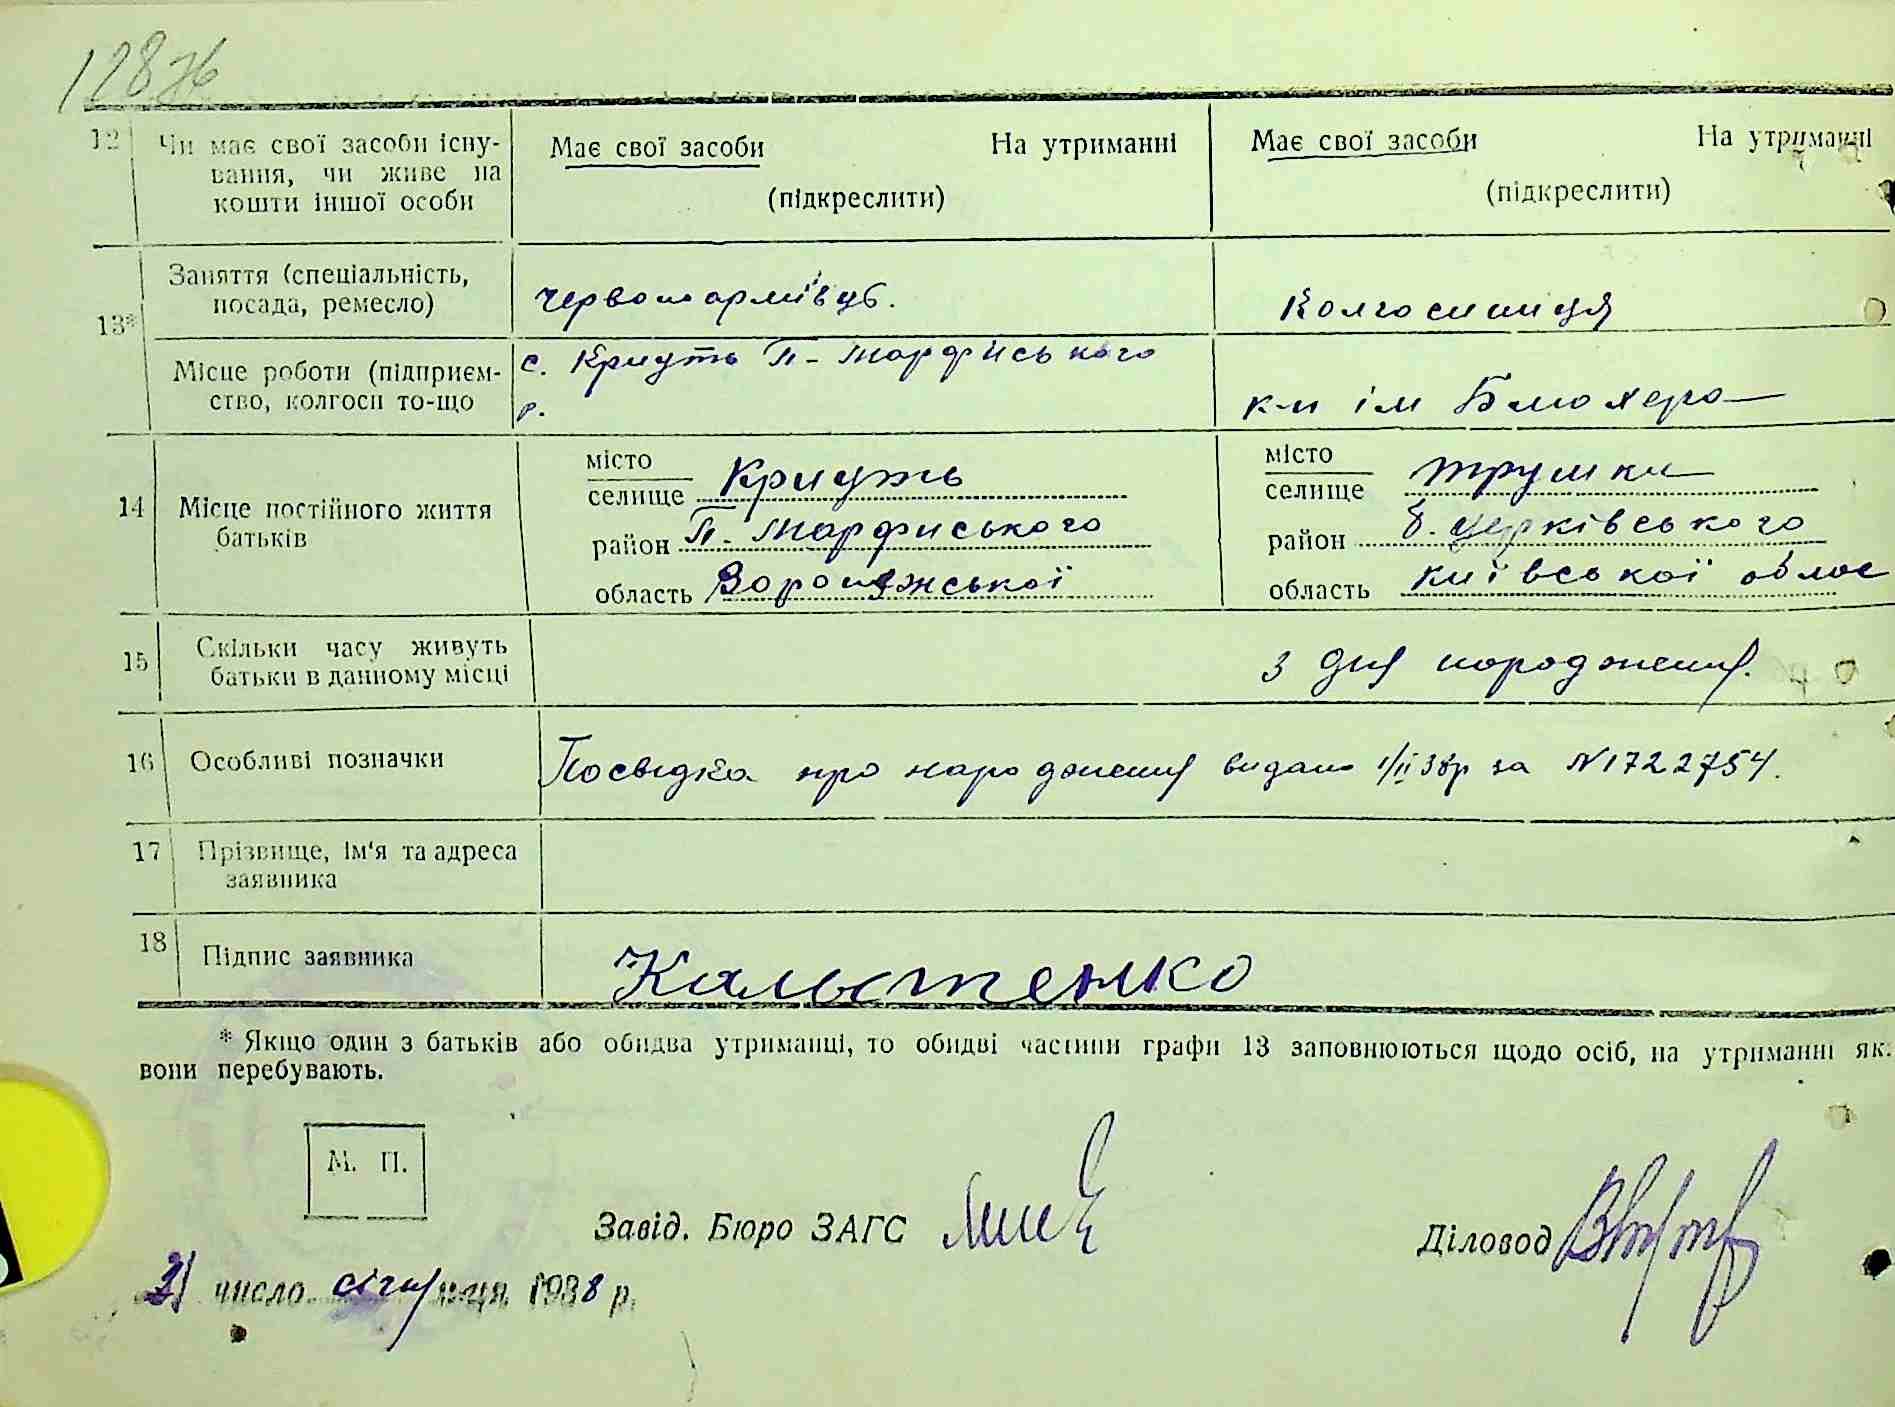 128
12 Чи має свої засоби існу- Має свої засоби На утриманні Має свої засоби На утриманні
вання, чи живе на (підкреслити) (підкреслити)
кошти іншої особи
13* Заняття (спеціальність, червоноармієць. Колгоспниця
посада, ремесло)
Місце роботи (підприєм- с. Криуть П-Марфиського
ство, колгосп то-що р. к-п ім Блюхера
14 Місце постійного життя місто Криуть місто Трушки
батьків селище селище
район П. Марфиського район б. церківського
область Воронежської область київської облас
15 Скільки часу живуть з дня народження.
батьки в данному місці
16 Особливі позначки Посвідка про народження видана 1/II 38р за №1722754.
17 Прізвище, ім'я та адреса
заявника
18 Підпис заявника Кальотенко
* Якщо один з батьків або обидва утриманці, то обидві частини графи 13 заповнюються щодо осіб, на утриманні як.
вони перебувають.
М. П.
Завід. Бюро ЗАГС Діловод
31 число січня м-ця 1938 р.